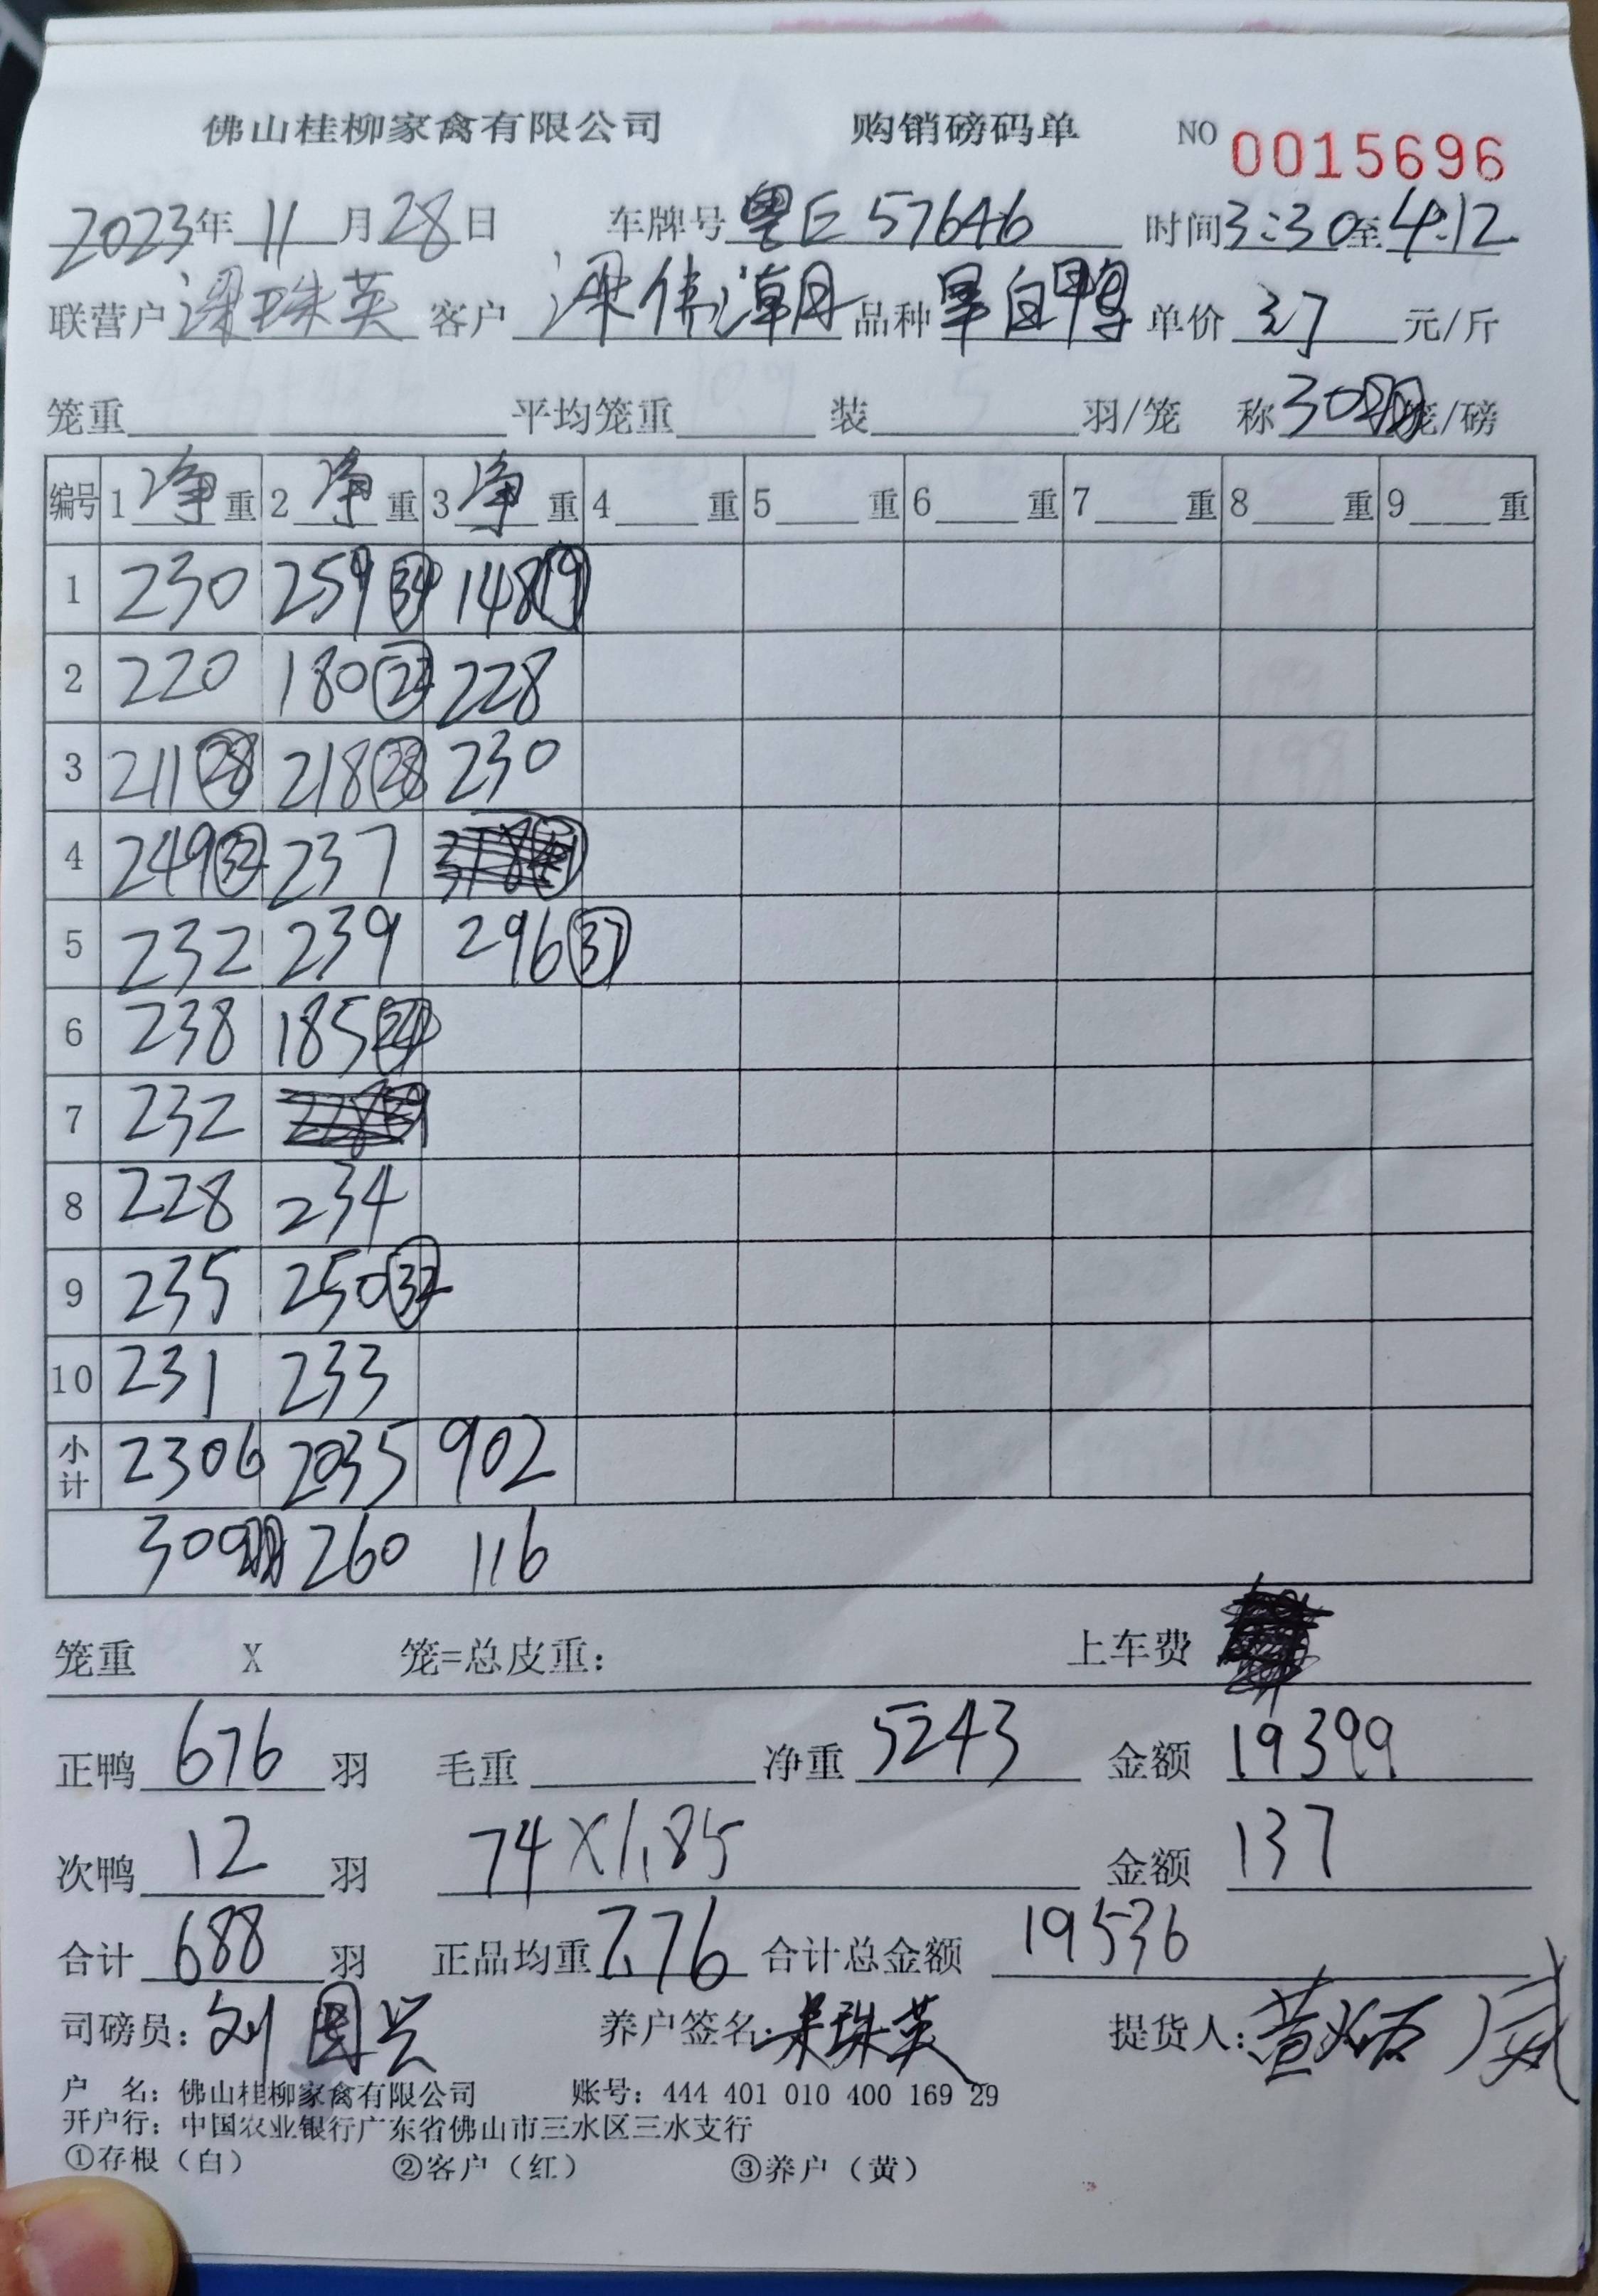 佛山桂柳家禽有限公司 购销磅码单 NO 0015696
2023年11月28日 车牌号粤E57646 时间3:30至4:12
联营户梁珠英 客户梁伟潮 品种旱白鸭 单价3.7元/斤
笼重 平均笼重 装 羽/笼 称30羽笼/磅
编号 1净重 2净重 3净重 4重 5重 6重 7重 8重 9重
1 230 259(34) 148(19)
2 220 180(23) 228
3 211(28) 218(28) 230
4 249(32) 237
5 232 239 296(37)
6 238 185(24)
7 232
8 228 234
9 235 250(32)
10 231 233
小计 2306 2035 902
300羽 260 116
笼重 X 笼=总皮重: 上车费
正鸭676羽 毛重 净重5243 金额19399
次鸭12羽 74X1.85 金额137
合计688羽 正品均重7.76 合计总金额19536
司磅员:刘国兴 养户签名:梁珠英 提货人:黄 威
户 名:佛山桂柳家禽有限公司 账号:444 401 010 400 169 29
开户行:中国农业银行广东省佛山市三水区三水支行
①存根(白) ②客户(红) ③养户(黄)